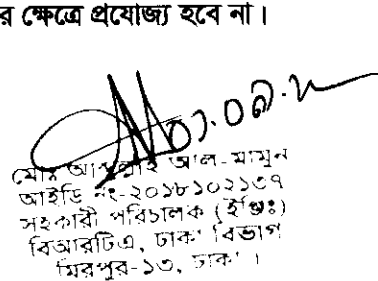 র ক্ষেত্রে প্রযোজ্য হবে না।
মোঃ আব্দুল্লাহ আল-মামুন
আইডি নং-২০১৮১০২১৩৭
সহকারী পরিচালক (ইঞ্জিঃ)
বিআরটিএ, ঢাকা বিভাগ
মিরপুর-১৩, ঢাকা।